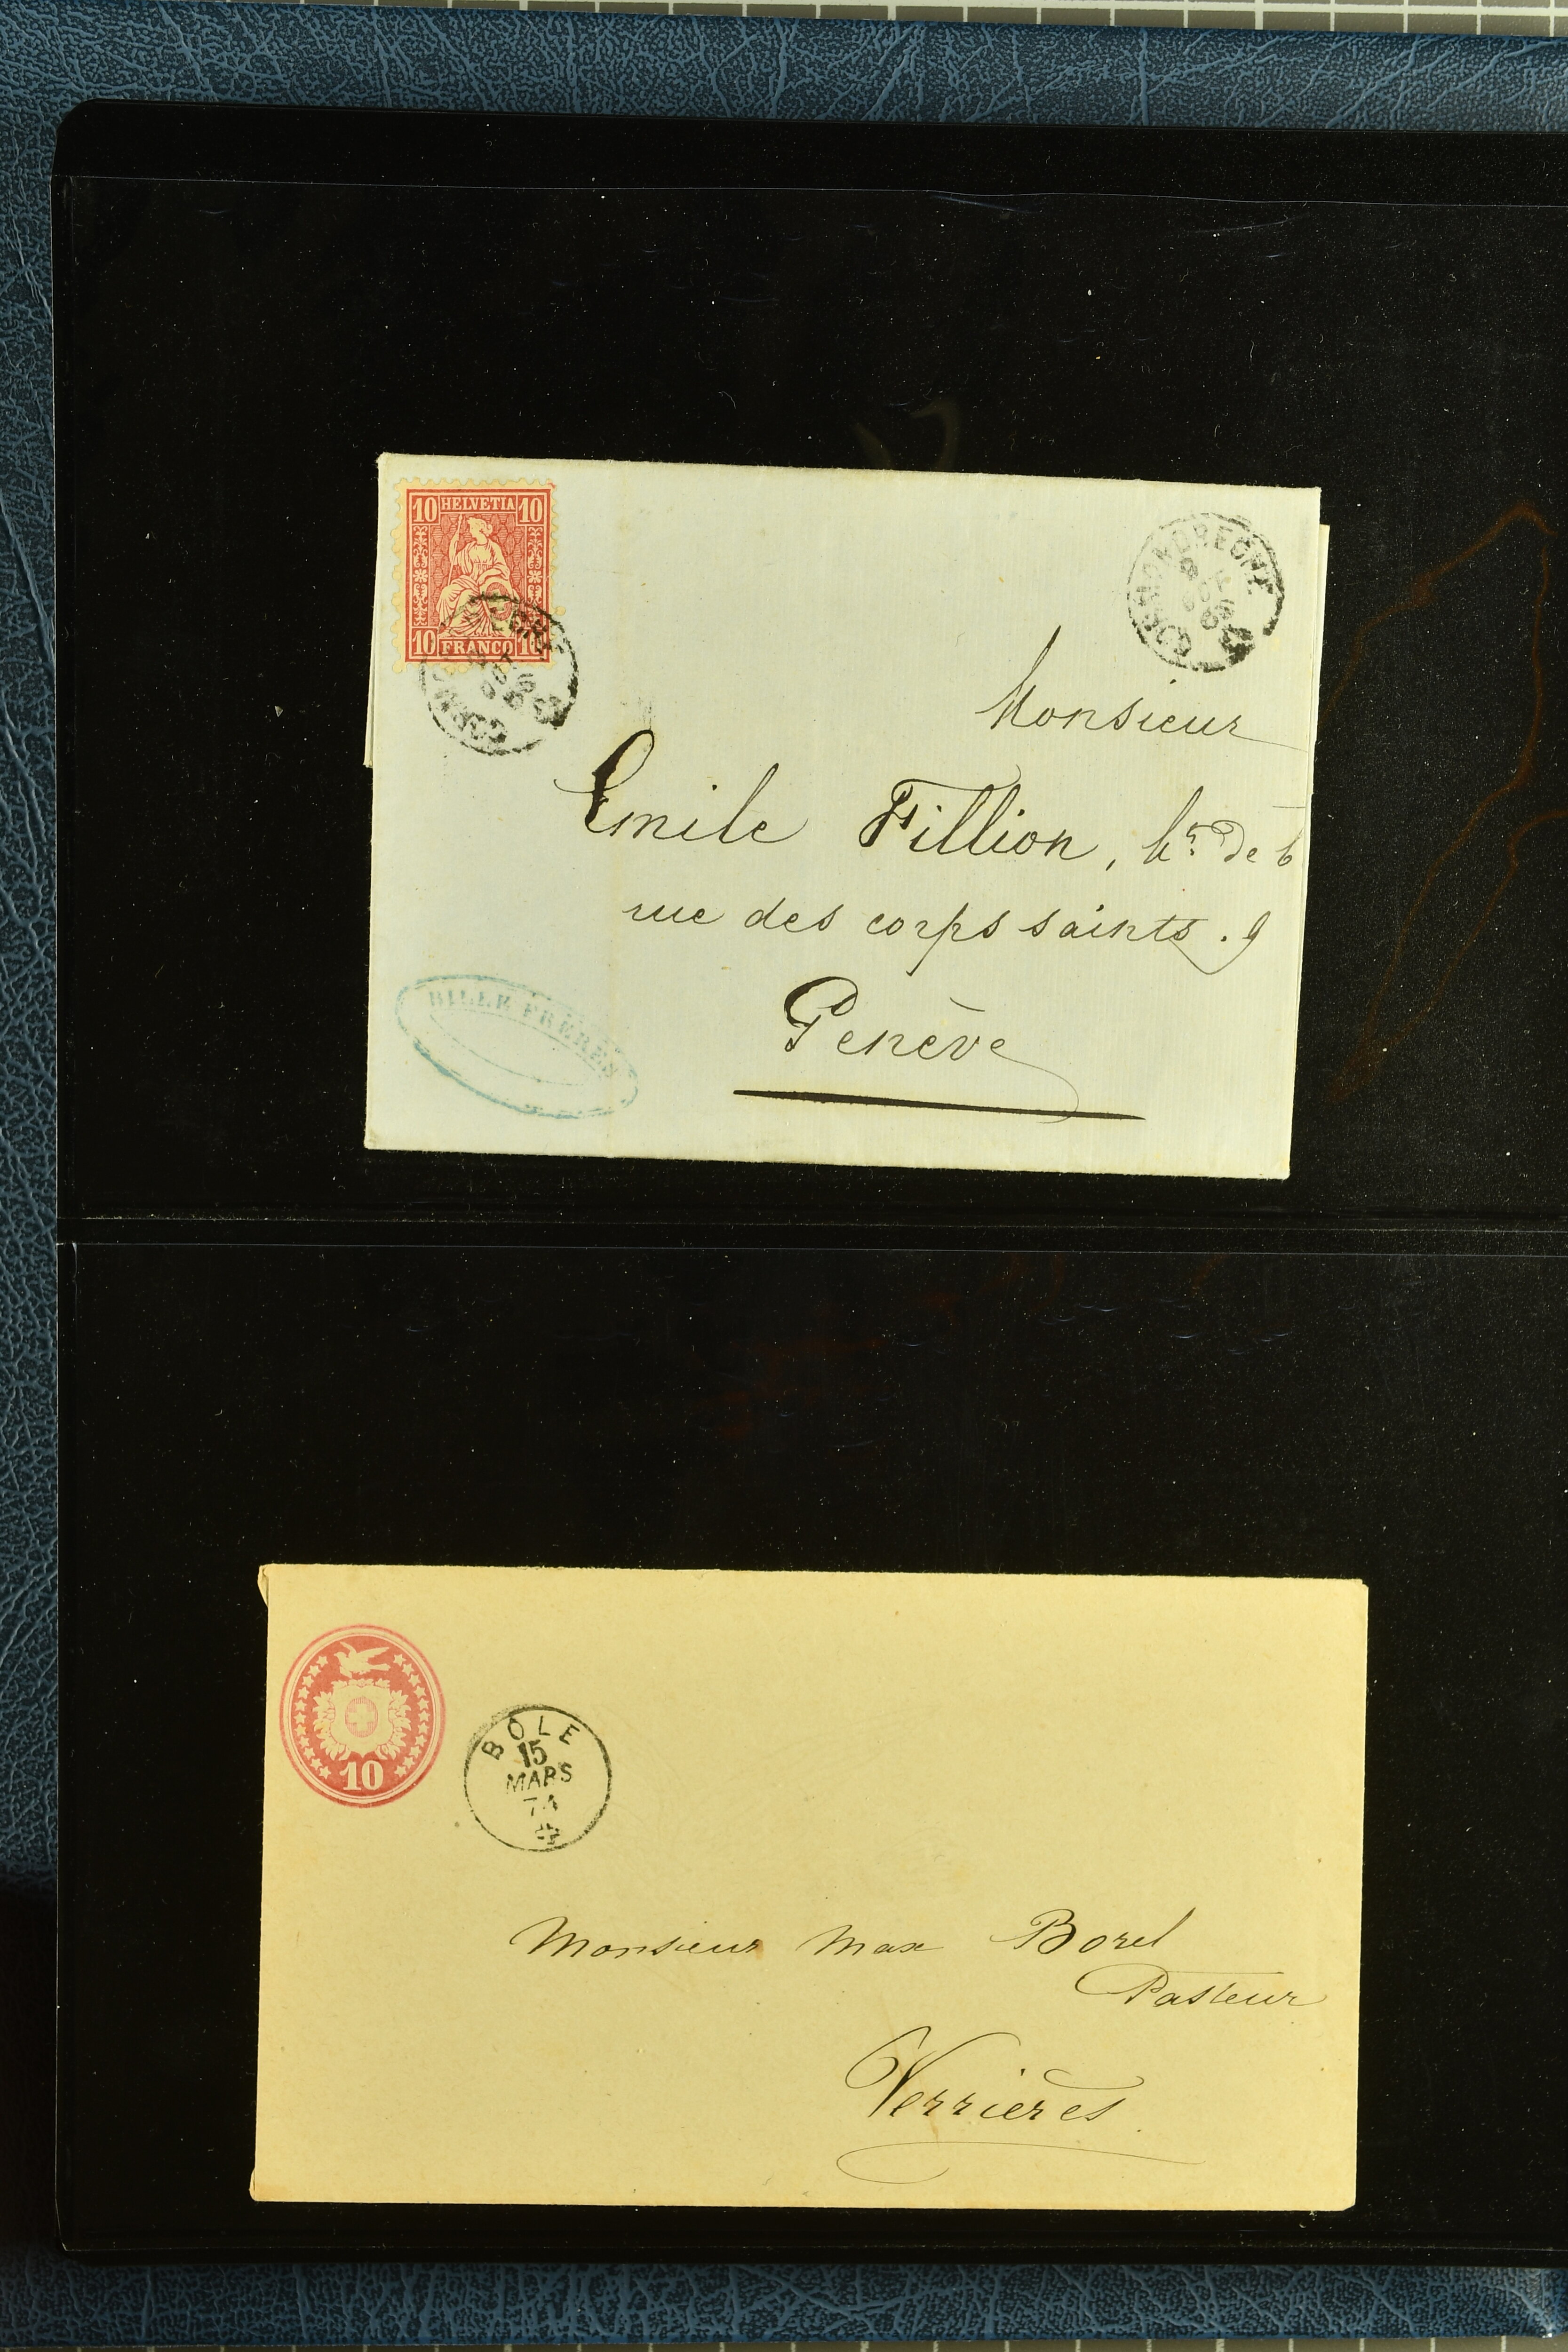 10 HELVETIA 10
10 FRANCO 10
CORMONDRECHE
Monsieur
Emile Fillion, hr. de b
rue des corps saints . 9
Genève
BILLE FRÈRES
10
BOLE
15
MARS
74
Monsieur Max Borel
Pasteur
Verrières